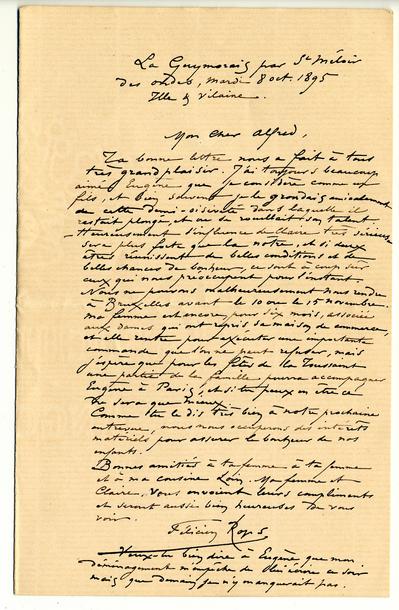 La Guymorais par St Méloir
des ondes, mardi 8 oct. 1895
Ille & Vilaine.
Mon cher Alfred,
Ta bonne lettre nous a fait à tous
très grand plaisir. J'ai toujours beaucoup
aimé Eugène que je considère comme un
fils, et bien souvent je le grondais amicalement
de cette demi-oisiveté dans laquelle il
restait plongé et de rouillait son talent
Heureusement l'influence de Claire très sérieuse
sera plus forte que la notre, et si deux
êtres réunissent de belles conditions et de
belles chances de bonheur, ce sont à coup sûr
ceux qui nous préoccupent pour l'instant.
Nous ne pouvons malheureusement nous rendre
à Bruxelles avant le 10 ou le 15 novembre.
ma femme est encore, pour dix mois, associée
aux dames qui ont repris sa maison de commerce,
et elle rentre pour exécuter une importante
commande que l'on ne peut refuser, mais
j'espère que pour les fêtes de la Toussaint
une partie de la famille pourra accompagner
Eugène à Paris, et si tu peux en être ce
ne sera que mieux.
Comme tu le dis très bien à notre prochaine
entrevue, nous nous occuperons des intérêts
matériels pour assurer le bonheur de nos
enfants.
Bonnes amitiés à ta femme à ta femme
et à ma cousine Ma femme et
Claire, vous envoient leurs compliments
et seront aussi bien heureuses de vous
voir.
Félicien Rops
Veux-tu bien dire à Eugène que mon
déménagement m'empêche de lui écrire ce soir
mais que demain je n'y manquerait pas.